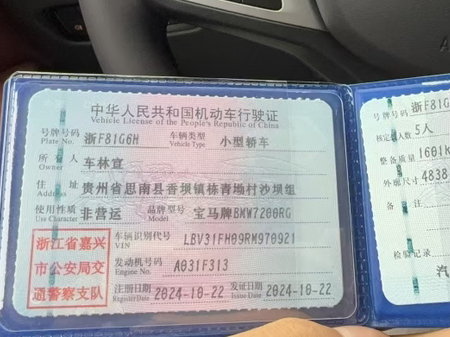 中华人民共和国机动车行驶证
Vehicle License of the People's Republic of China
号牌号码 浙F81G6H 车辆类型 小型轿车
Plate No. Vehicle Type
所有人 车林宣
Owner
住址 贵州省思南县香坝镇栋青坳村沙坝组
Address
使用性质 非营运 品牌型号 宝马牌BMW7200RG
Use Character Model
浙江省嘉兴
市公安局交
通警察支队
车辆识别代号 LBV31FH09RM970921
VIN
发动机号码 A031F313
Engine No.
注册日期 2024-10-22 发证日期 2024-10-22
Register Date Issue Date
号牌号码 浙F81G
5人
整备质量 1601k
外廓尺寸 4838
备注
检验记录
汽